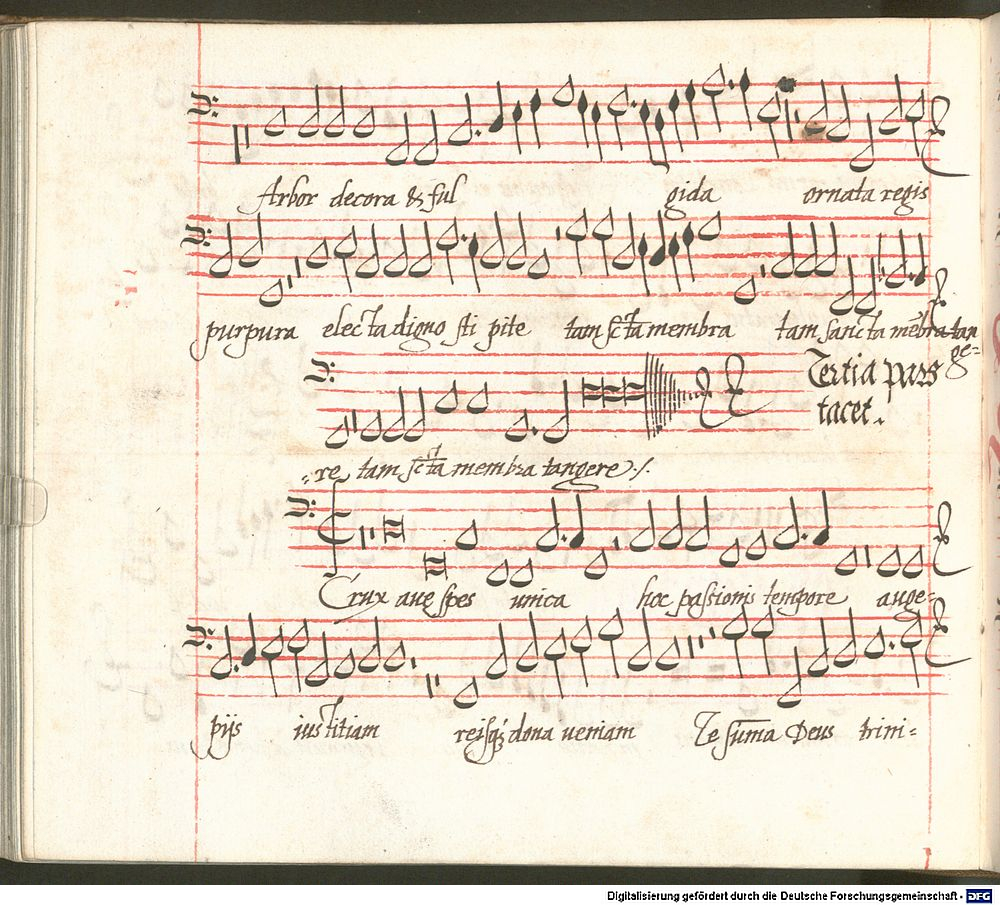 Arbor decora & ful gida ornata regis
purpura electa digno sti pite tam scta membra tam sancta mēbra tan
ge-
Tertia pars
tacet.
-re tam scta membra tangere ./.
Crux aue spes unica hoc passionis tempore auge-
pijs iustitiam reisq; dona ueniam Te sum̄a Deus trini-
Digitalisierung gefördert durch die Deutsche Forschungsgemeinschaft - DFG